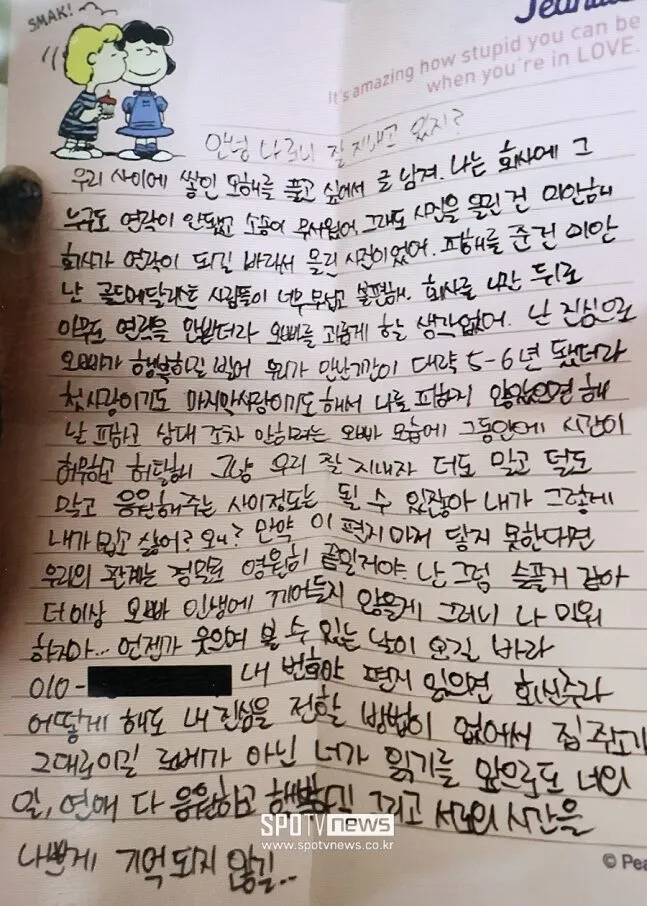 SMAK!
It's amazing how stupid you can be
when you're in LOVE.
안녕 나 잘지내고 있지?
우리 사이에 쌓인 오해를 풀고 싶어서 글 남겨. 나는 회사에 그
누구도 연락이 안됐고 소송이 무서웠어. 그래도 사진을 올린 건 미안해
회사가 연락이 되길 바라서 올린 사진이었어. 피해를 준건 미안
난 골드메달리스트 사람들이 너무 무섭고 불편해. 회사를 나간 뒤로
아무도 연락을 안받더라 오빠를 괴롭게 할 생각없어. 난 진심으로
오빠가 행복하길 빌어 우리가 만난기간이 대략 5-6년 됐더라
첫사랑이기도 마지막사랑이기도 해서 나를 피하지 않았으면 해
날 피하고 상대 조차 안하려는 오빠 모습에 그동안에 시간이
허무하고 허탈해 그냥 우리 잘 지내자 더도 말고 덜도
말고 응원해주는 사이정도는 될 수 있잖아 내가 그렇게
내가 밉고 싫어? 왜? 만약 이 편지마저 닿지 못한다면
우리의 관계는 정말로 영원히 끝일거야. 난 그럼 슬플거 같아
더이상 오빠 인생에 끼어들지 않을게 그러니 나 미워
하지마... 언젠가 웃으며 볼 수 있는 날이 오길 바라
010- 내 번호야 편지 읽으면 회신주라
어떻게 해도 내 진심을 전할 방법이 없어서 집 주소가
그대로이길 로베가 아닌 너가 읽기를 앞으로도 너의
일, 연애 다 응원하고 행복하길 그리고 서로의 시간을
나쁘게 기억되지 않길...
SPOTVnews
www.spotvnews.co.kr